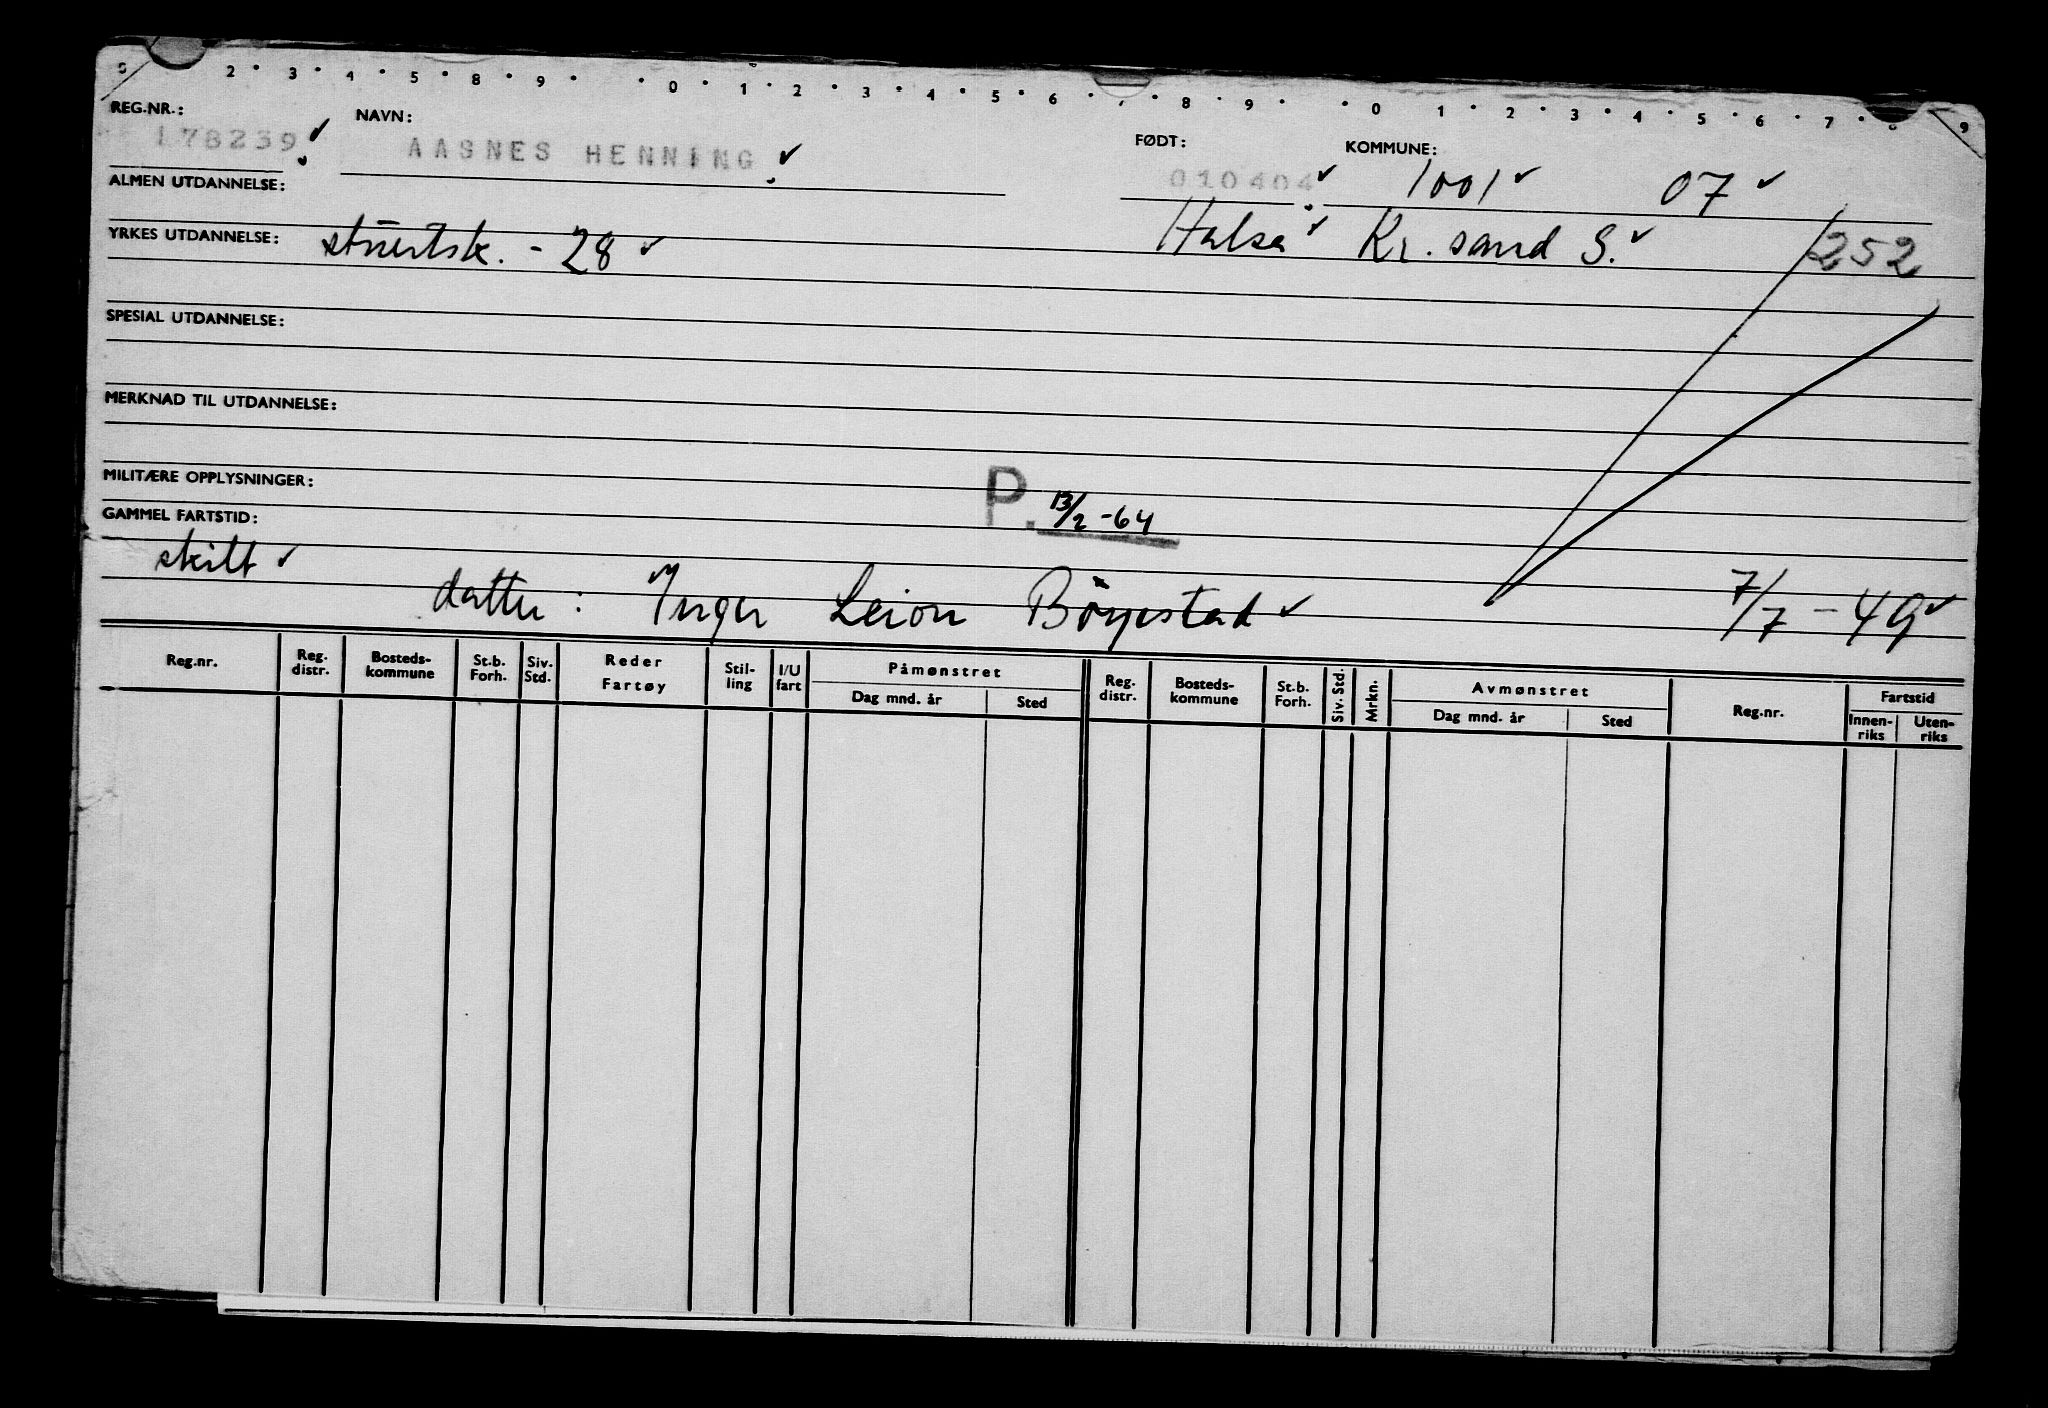 0 2 3 4 5 8 9 0 1 2 3 4 5 6 7 8 9 0 1 2 3 4 5 6 7 8 9
REG.NR.: NAVN: FØDT: KOMMUNE:
178239 AASNES HENNING 010404 1001 07
ALMEN UTDANNELSE:
YRKES UTDANNELSE: stuertsk. - 28 Halså Kr. sand S. 252
SPESIAL UTDANNELSE:
MERKNAD TIL UTDANNELSE:
MILITÆRE OPPLYSNINGER:
P. 13/2 -64
GAMMEL FARTSTID:
skilt
datter: Inger Børjestad 7/7 - 49
Reg.nr. Reg. distr. Bosteds- kommune St.b. Forh. Siv. Std. Reder Fartøy Stil- ling I/U fart Påmønstret Reg. distr. Bosteds- kommune St.b. Forh. Siv. Std. Mrkn. Avmønstret Reg.nr. Fartstid
Dag mnd. år Sted Dag mnd. år Sted Innen- riks Uten- riks